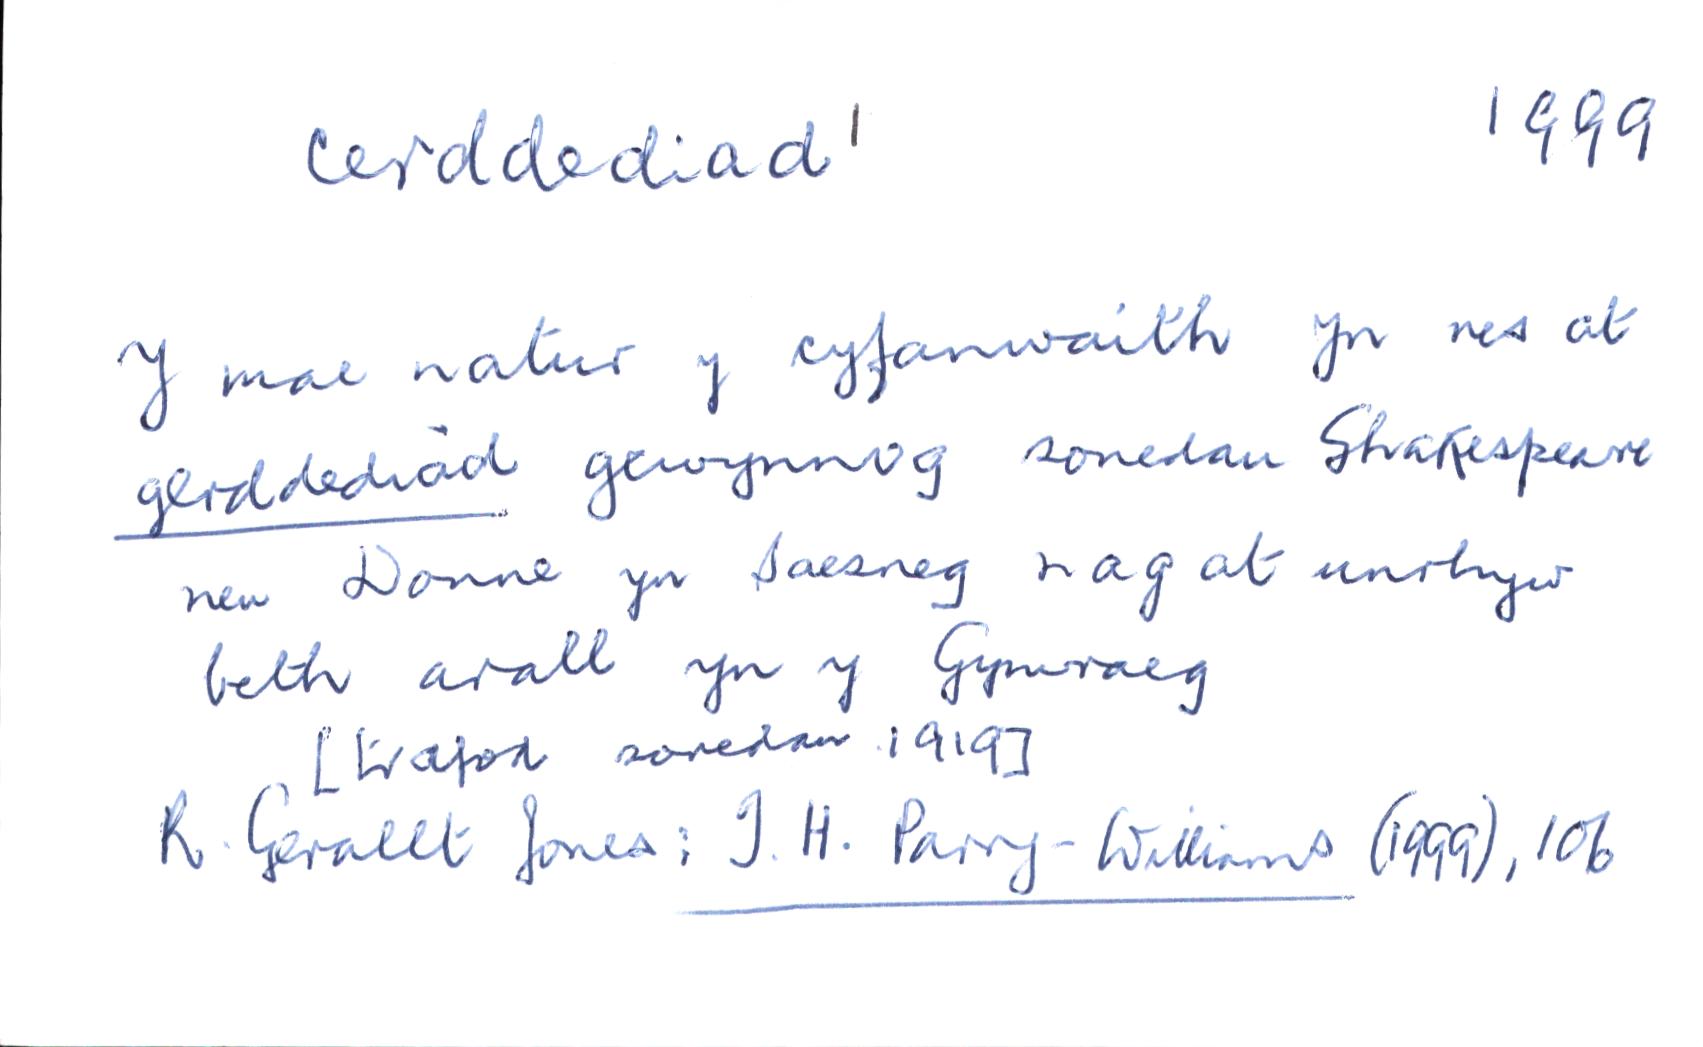 cerddediad¹ 1999
Y mae natur y cyfanwaith yn nes at
gerddediad gewynnog sonedau Shakespeare
neu Donne yn Saesneg nag at unrhyw
beth arall yn y Gymraeg
[trafod sonedau 1919]
R. Gerallt Jones: T. H. Parry-Williams (1999), 106